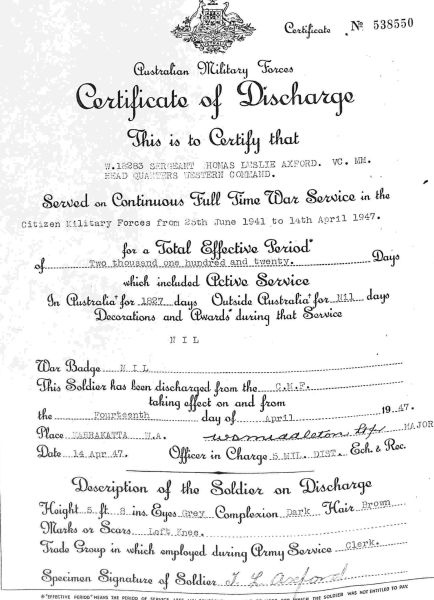 Certificate No 538550
Australian Military Forces
Certificate of Discharge
This is to Certify that
W.18283 SERGEANT HOMAS LESLIE AXFORD. VC. MM.
HEAD QUARTERS WESTERN COMMAND.
Served on Continuous Full Time War Service in the
Citizen Military Forces from 25th June 1941 to 14th April 1947.
for a Total Effective Period*
of Two thousand one hundred and twenty. Days
which included Active Service
In Australia† for 1827 days Outside Australia† for Nil days
Decorations and Awards† during that Service
N I L
War Badge N I L
This Soldier has been discharged from the C.M.F.
taking effect on and from
the Fourteenth day of April 1947.
Place KARRAKATTA W.A. MAJOR
Date 14 Apr 47. Officer in Charge 5 MIL. DIST. Ech & Rec.
Description of the Soldier on Discharge
Height 5 ft 8 ins. Eyes Grey Complexion Dark Hair Brown
Marks or Scars Left Knee.
Trade Group in which employed during Army Service Clerk.
Specimen Signature of Soldier T L Axford